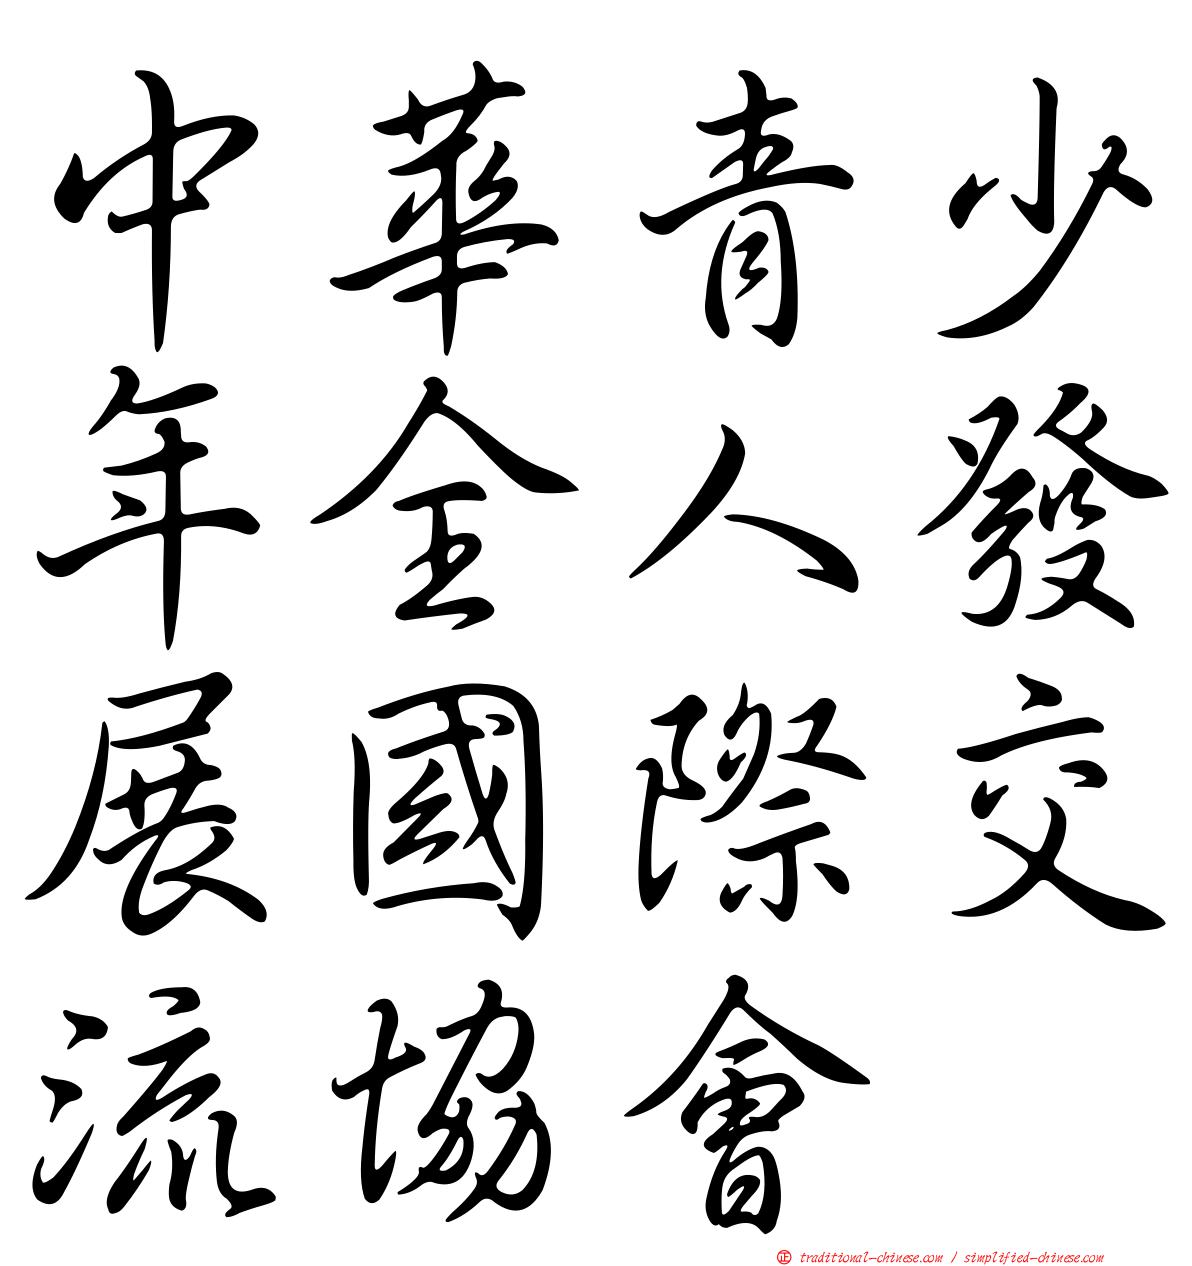 中華青少
年全人發
展國際交
流協會
正 traditional-chinese.com / simplified-chinese.com